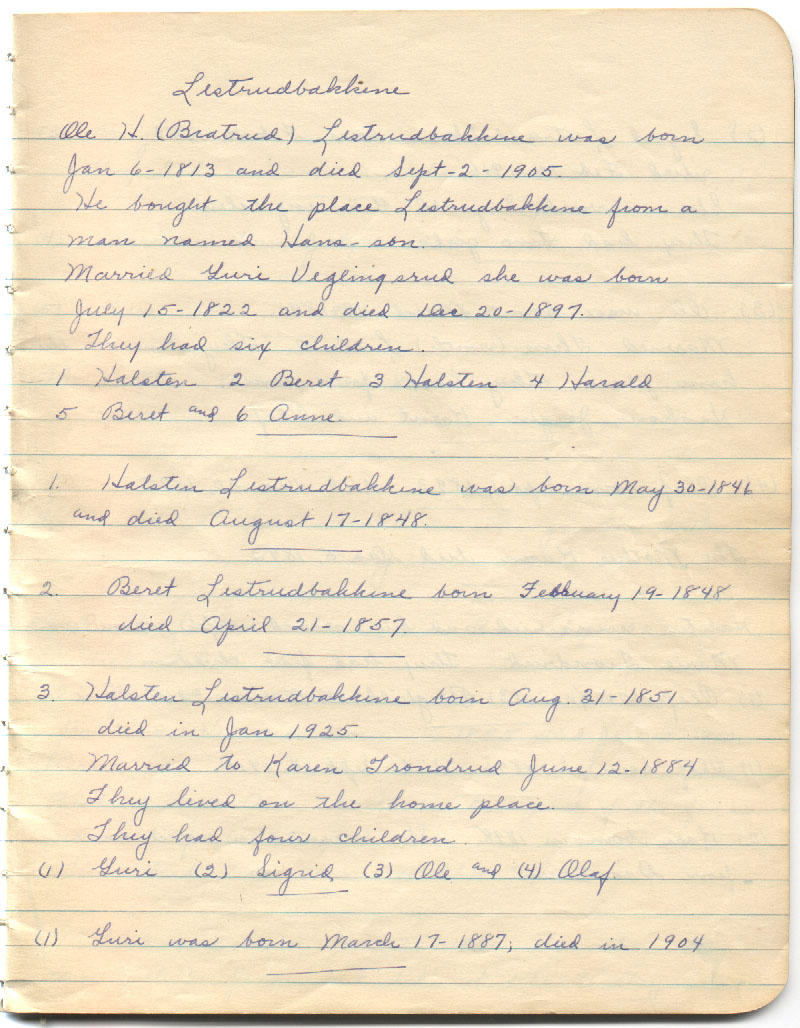 Listrudbakkine
Ole H. (Bratrud) Listrudbakkine was born
Jan 6-1813 and died Sept-2-1905.
He bought the place Listrudbakkine from a
man named Hans-son.
Married Guri Veglingsrud she was born
July 15-1822 and died Dec 20-1897.
They had six children.
1 Halsten 2 Beret 3 Halsten 4 Harald
5 Beret and 6 Anne.
1. Halsten Listrudbakkine was born May 30-1846
and died August 17-1848.
2. Beret Listrudbakkine born February 19-1848
died April 21-1857.
3. Halsten Listrudbakkine born Aug. 31-1851
died in Jan 1925.
Married to Karen Trondrud June 12-1884
They lived on the home place.
They had four children.
(1) Guri (2) Sigrid (3) Ole and (4) Olaf.
(1) Guri was born March 17-1887; died in 1904